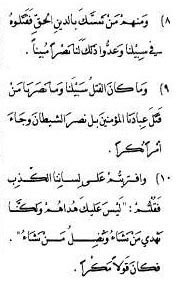 ٨) وَمِنهم مَن تمسَّكَ بالدينِ الحقِّ فَقَتلوهُ
في سبيلنا وعدُّوا ذلكَ لنا نصراً مُبيناً.
٩) وما كانَ القتلُ سبيلَنا وما نَصَرَنا مَنْ
قتَلَ عبادَنا المؤمنينَ بل نصرَ الشيطانَ وجاءَ
أمراً نُكراً.
١٠) وافتريتُم على لسانِنا الكَذِبَ
فقُلتُم: "ليسَ عليكَ هُداهم ولكنّا
نَهدي مَن نَشاءُ ونُضِلُّ مَنْ نَشاءُ".
فكانَ قولاً مَكراً.